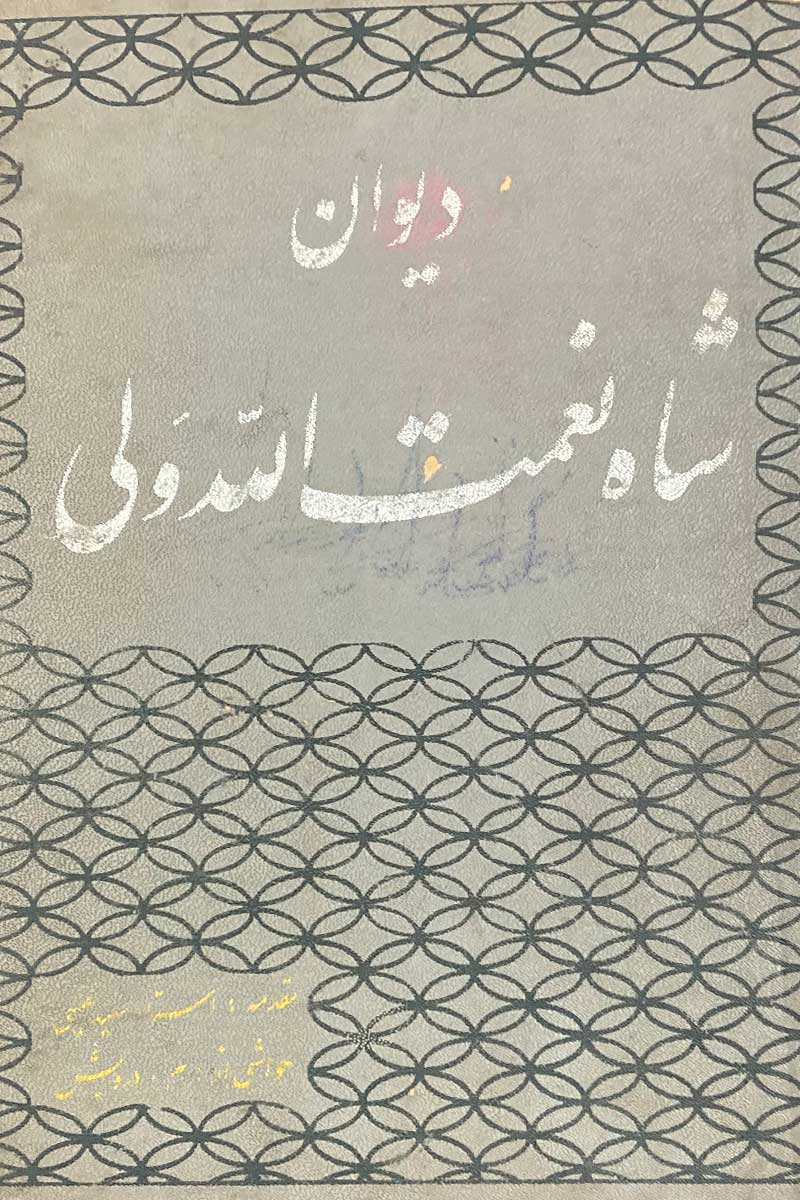 دیوان
شاه نعمت الله وَلی
مقدمه : استاد سعید نفیسی
حواشی از : م . درویش